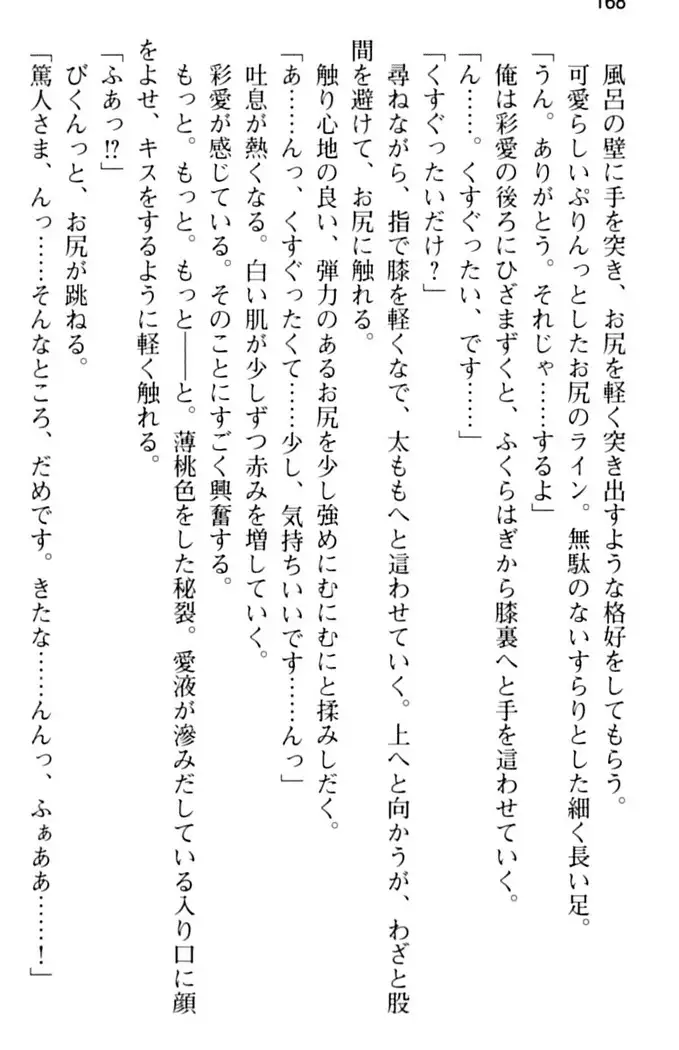 168
風呂の壁に手を突き、お尻を軽く突き出すような格好をしてもらう。
可愛らしいぷりんっとしたお尻のライン。無駄のないすらりとした細く長い足。
「うん。ありがとう。それじゃ……するよ」
俺は彩愛の後ろにひざまずくと、ふくらはぎから膝裏へと手を這わせていく。
「ん……。くすぐったい、です……」
「くすぐったいだけ?」
尋ねながら、指で膝を軽くなで、太ももへと這わせていく。上へと向かうが、わざと股
間を避けて、お尻に触れる。
触り心地の良い、弾力のあるお尻を少し強めにむにむにと揉みしだく。
「あ……んっ、くすぐったくて……少し、気持ちいいです……んっ」
吐息が熱くなる。白い肌が少しずつ赤みを増していく。
彩愛が感じている。そのことにすごく興奮する。
もっと。もっと。もっと――と。薄桃色をした秘裂。愛液が滲みだしている入り口に顔
をよせ、キスをするように軽く触れる。
「ふあっ!?」
びくんっと、お尻が跳ねる。
「篤人さま、んっ……そんなところ、だめです。きたな……んんっ、ふぁああ……!」